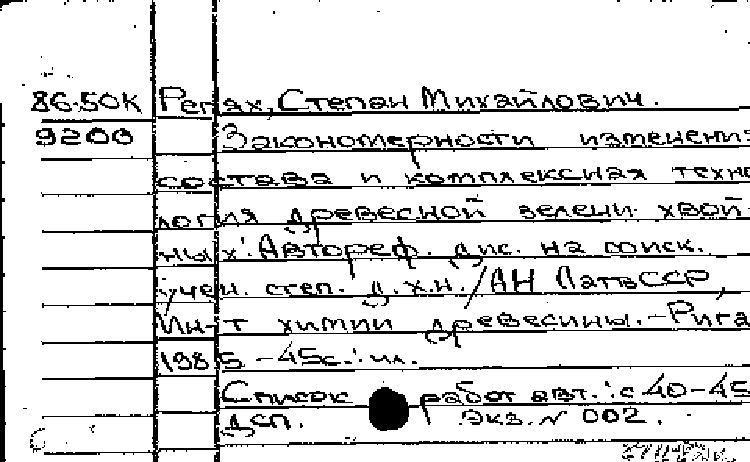 86-50К Репях, Степан Михайлович.
9200 Закономерности изменения
состава и комплексная техно
логия древесной зелени хвой-
ных: Автореф. дис. на соиск.
учен. степ. д.х.н./АН ЛатвССР,
Ин-т химии древесины.-Рига
1985 -45с.:ил.
Список работ авт.:с 40-45
Дсп. Экз.№ 002.